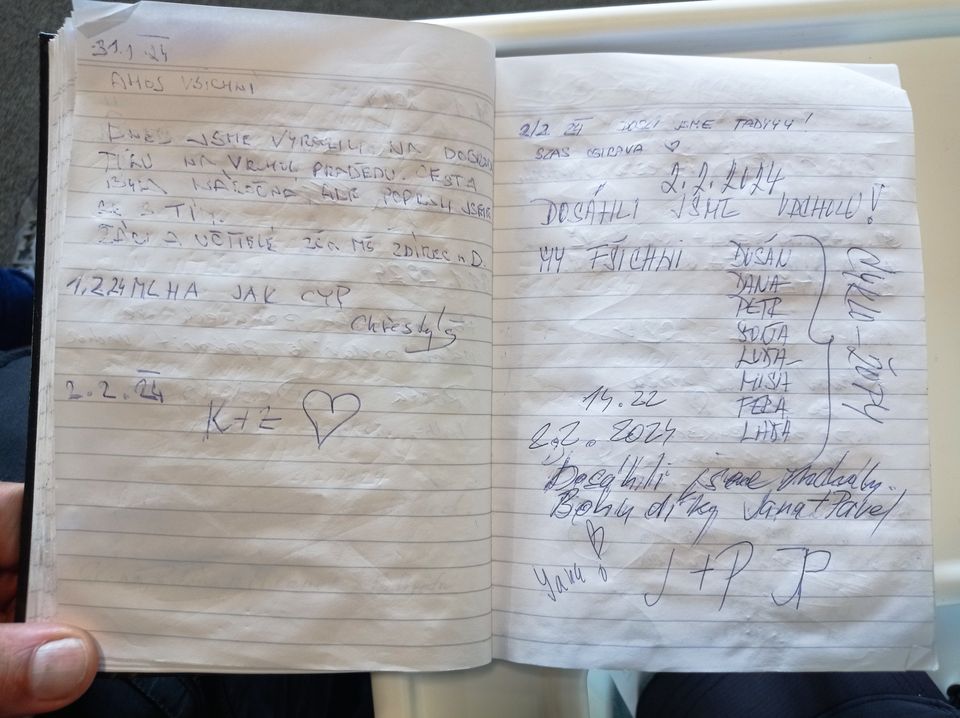 31.1. 24
AHOJ VŠICHNI
DNES JSME VYRAZILI NA
TÚRU NA VRCHOL PRADĚDU. CESTA
BYLA NÁROČNÁ ALE POPRALI JSME
SE S TÍM.
ŽÁCI A UČITELÉ ZŠ A MŠ ŽDÍREC N D.
1,2 24 MLHA JAK CYP
2.2. 24
K+Z = ♡
2/2 24 DOŠLI JSME TADYYY!
SZAS OSTRAVA ♡
2.2.2024
DOSÁHLI JSME VRCHOLU!
MY FŠICHNI
DUŠAN
DANA
PETR
SOŇA
LUĎA
MÍŠA
LÁĎA
14.22
2.2. 2024
Dosáhli jsme
Bohu díky Jana+Pavel
J+P JP